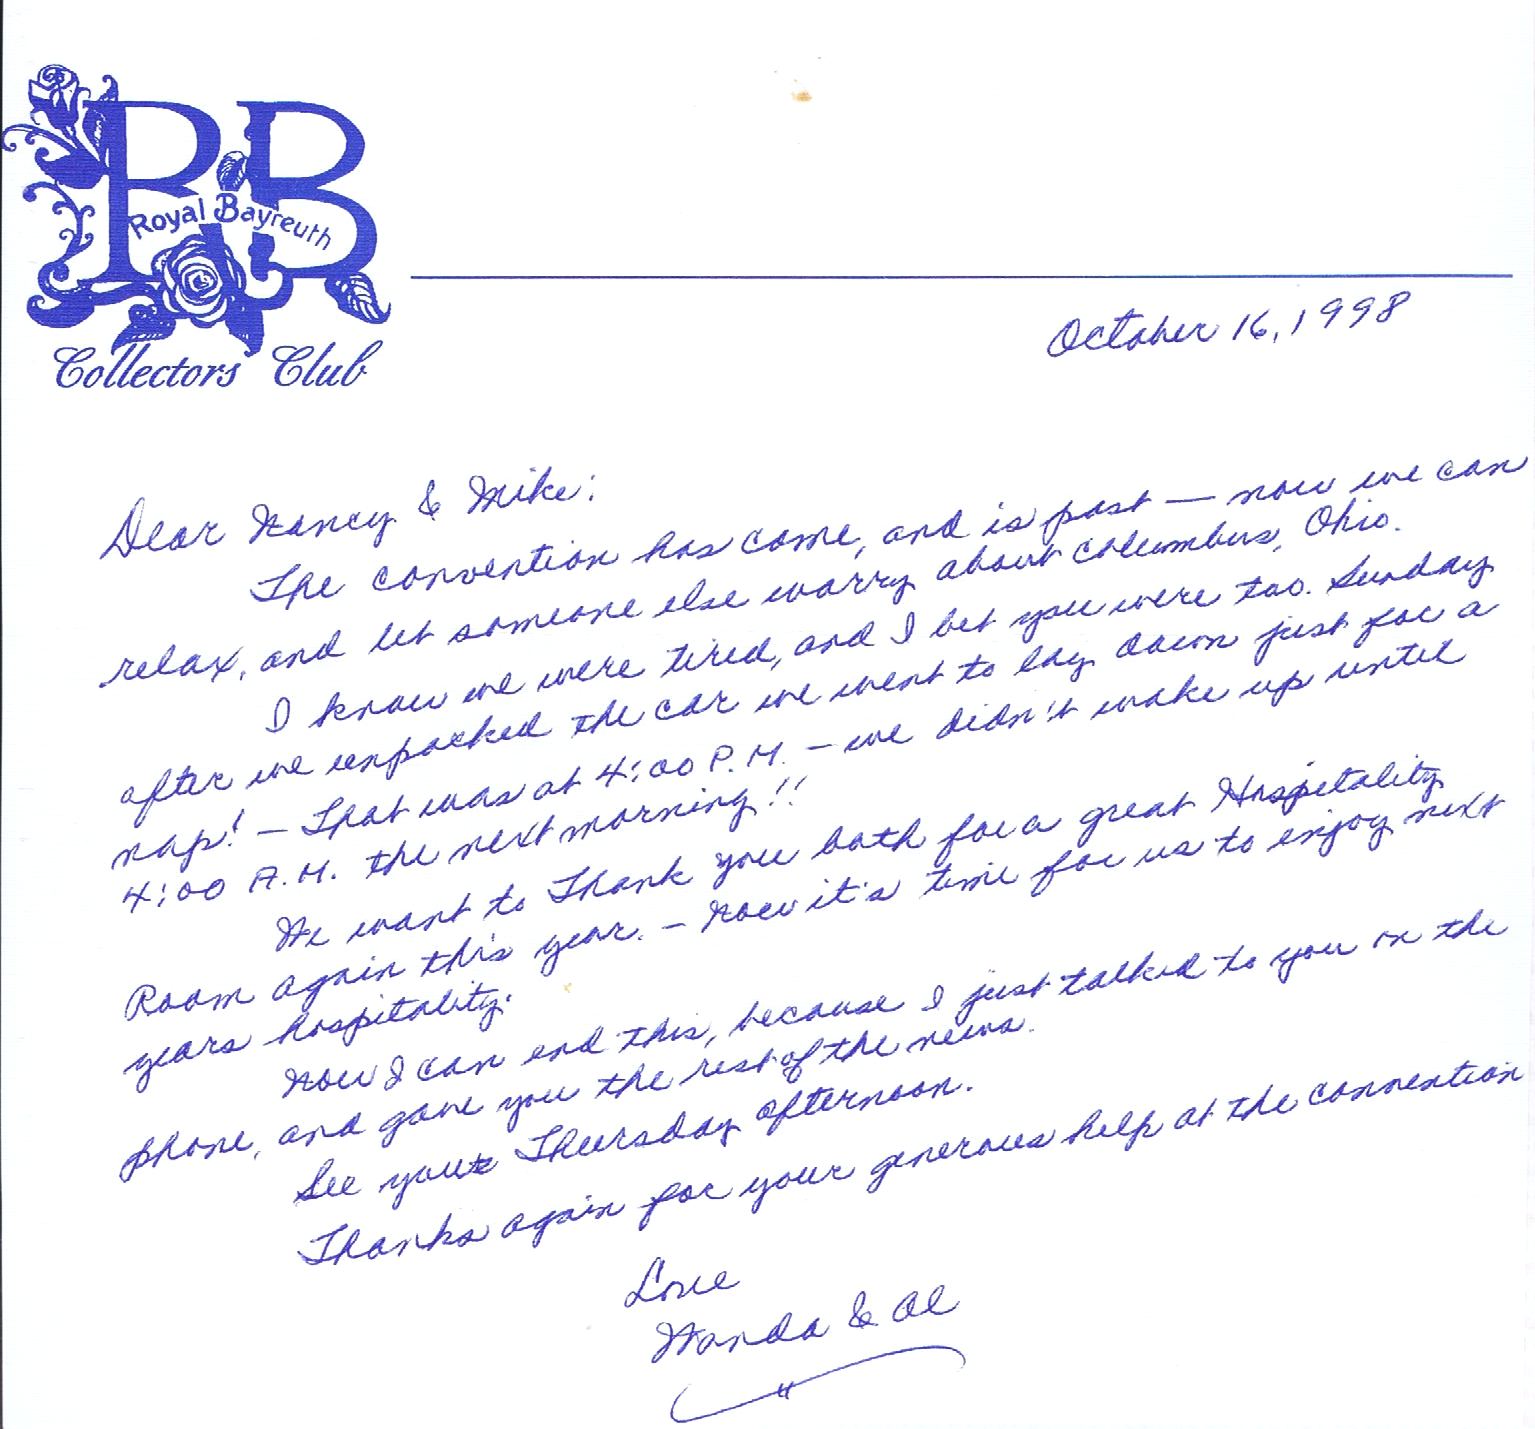 RB
Royal Bayreuth
Collectors Club
October 16, 1998
Dear Nancy & Mike:
The convention has come, and is past — now we can
relax, and let someone else worry about Columbus, Ohio.
I know we were tired, and I bet you were too. Sunday
after we unpacked the car we went to lay down just for a
nap! – That was at 4:00 P.M. – we didn't wake up until
4:00 A.M. the next morning!!
We want to Thank you both for a great Hospitality
Room again this year. – Now it's time for us to enjoy next
years hospitality.
Now I can end this, because I just talked to you on the
phone, and gave you the rest of the news.
See you Thursday afternoon.
Thanks again for your generous help at the convention
Love
Wanda & Al